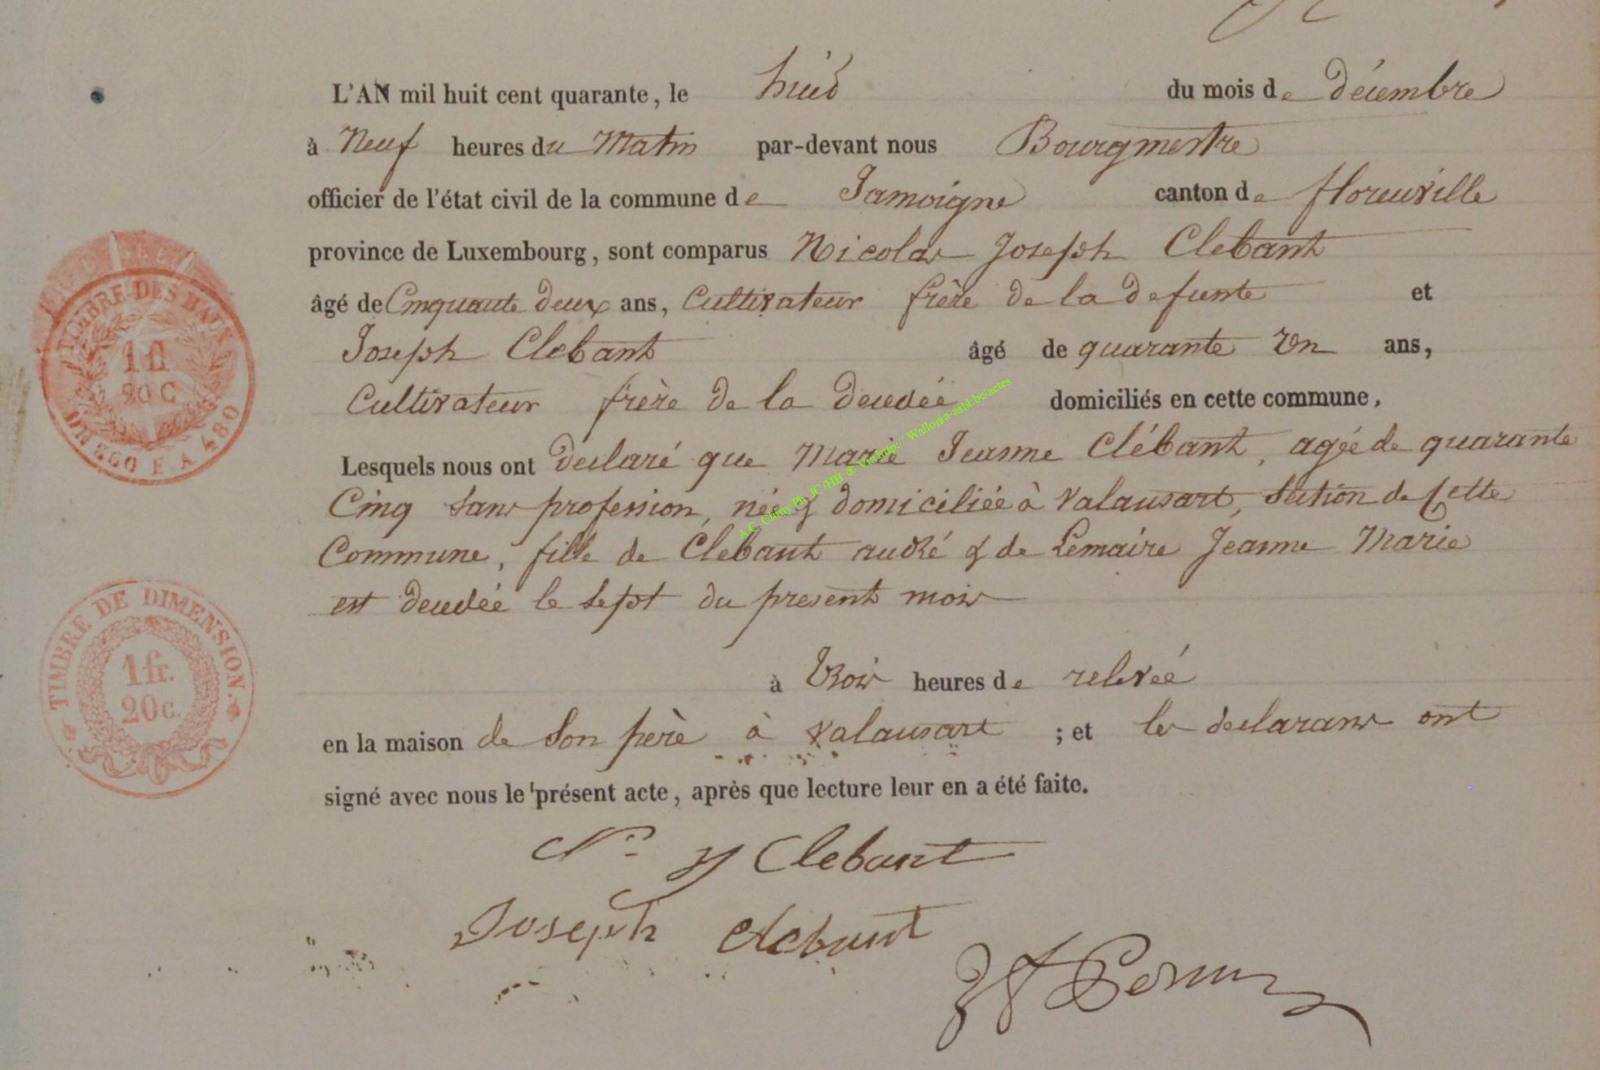 L'AN mil huit cent quarante, le huit du mois de décembre
à Neuf heures du Matin par-devant nous Bourgmestre
officier de l'état civil de la commune de Jamoigne canton de florenville
province de Luxembourg, sont comparus Nicolas Joseph Clebant
âgé de Cinquante deux ans, Cultivateur frère de la defunte et
Joseph Clebant âgé de quarante Un ans,
Cultivateur frère de la decedée domiciliés en cette commune,
Lesquels nous ont declaré que Marie Jeanne Clébant, agée de quarante
Cinq sans profession, née & domiciliée à Valansart, section de Cette
Commune, fille de Clebant andré & de Lemaire Jeanne Marie
est decedée le sept du present mois
à trois heures de relevée
en la maison de son père à Valansart ; et les declarans ont
signé avec nous le présent acte, après que lecture leur en a été faite.
N. J Clebant
Joseph Clebant
TIMBRE DES
1 fl
20 C
TIMBRE DE DIMENSION.
1 fr.
20 c.